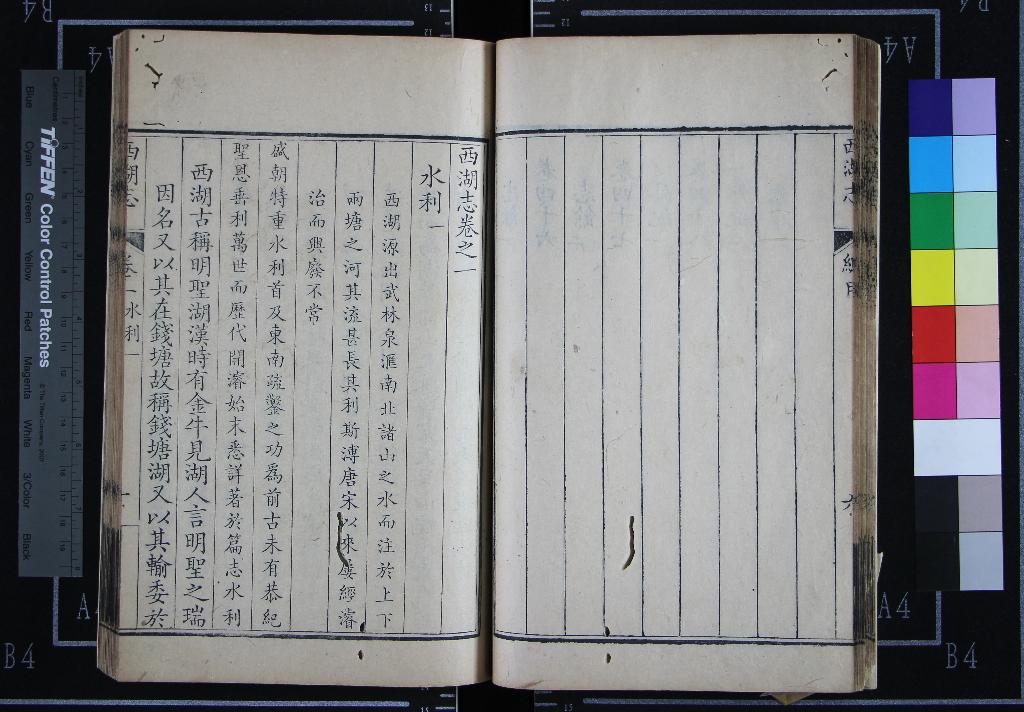 西湖志卷之一
水利一
西湖源出武林泉滙南北諸山之水而注於上下
兩塘之河其流甚長其利斯溥唐宋以來屢經濬
治而興廢不常
盛朝特重水利首及東南疏鑿之功爲前古未有恭紀
聖恩垂利萬世而歷代開濬始末悉詳著於篇志水利
西湖古稱明聖湖漢時有金牛見湖人言明聖之瑞
因名又以其在錢塘故稱錢塘湖又以其輸委於
西湖志
卷一 水利一
一
西湖志
TIFFEN Color Control Patches
© The Tiffen Company, 2007
Centimetres
Blue
Cyan
Green
Yellow
Red
Magenta
White
3/Color
Black
B4
A4
A4
B4
A4
B4
A4
B4